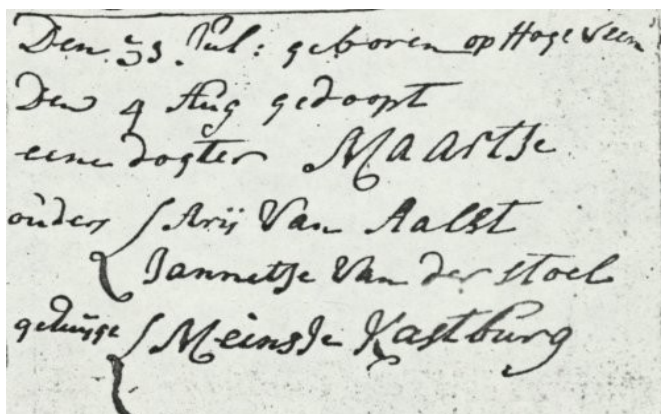 Den 31. Jul: geboren op Hogeveen
Den 4 Aug gedoopt
eene dogter Maartje
ouders Arij Van Aalst
Jannetje Van der stoel
getuijge Meinsje Kastburg